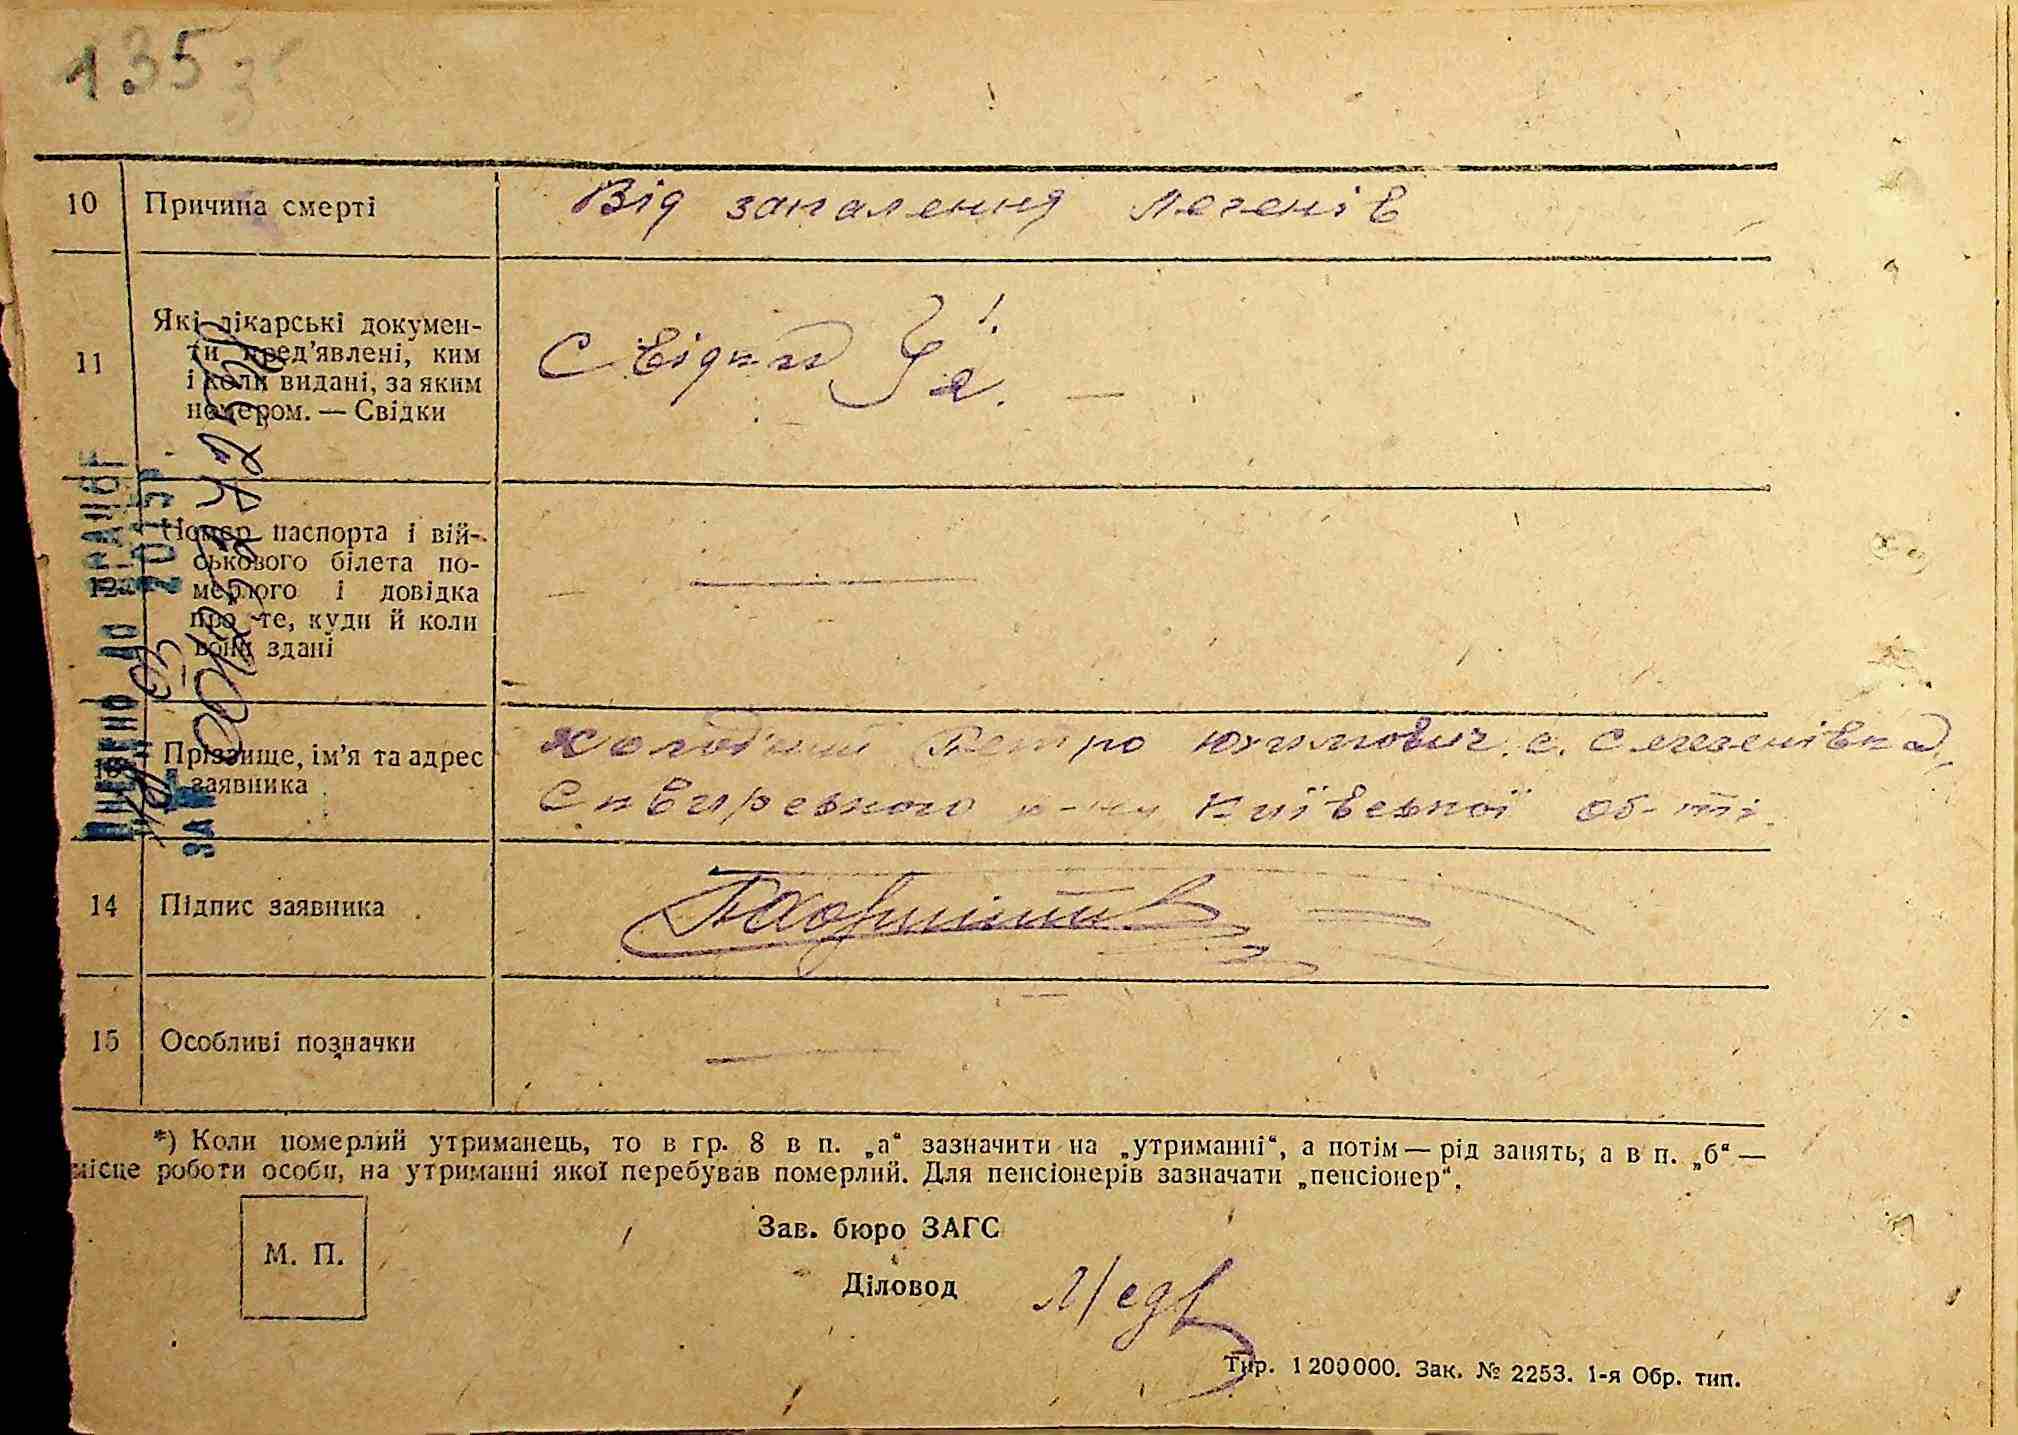 135 зв
10 Причина смерті Від запалення легенів
11 Які лікарські докумен-
ти пред’явлені, ким
і коли видані, за яким
номером. — Свідки
Свідки
12 Номер паспорта і вій-
ськового білета по-
мерлого і довідка
про те, куди й коли
вони здані
—
13 Прізвище, ім’я та адрес
заявника
Петро Юхимович. с.
Сквирського р-ну Київської об-ті.
14 Підпис заявника
15 Особливі позначки —
*) Коли померлий утриманець, то в гр. 8 в п. „а“ зазначити на „утриманні“, а потім — рід занять, а в п. „б“ —
місце роботи особи, на утриманні якої перебував померлий. Для пенсіонерів зазначати „пенсіонер“.
М. П.
Зав. бюро ЗАГС
Діловод
Тир. 1200000. Зак. № 2253. 1-я Обр. тип.
ВНЕСЕНО ДО ДРАЦСГ
ЗА № 2015р.